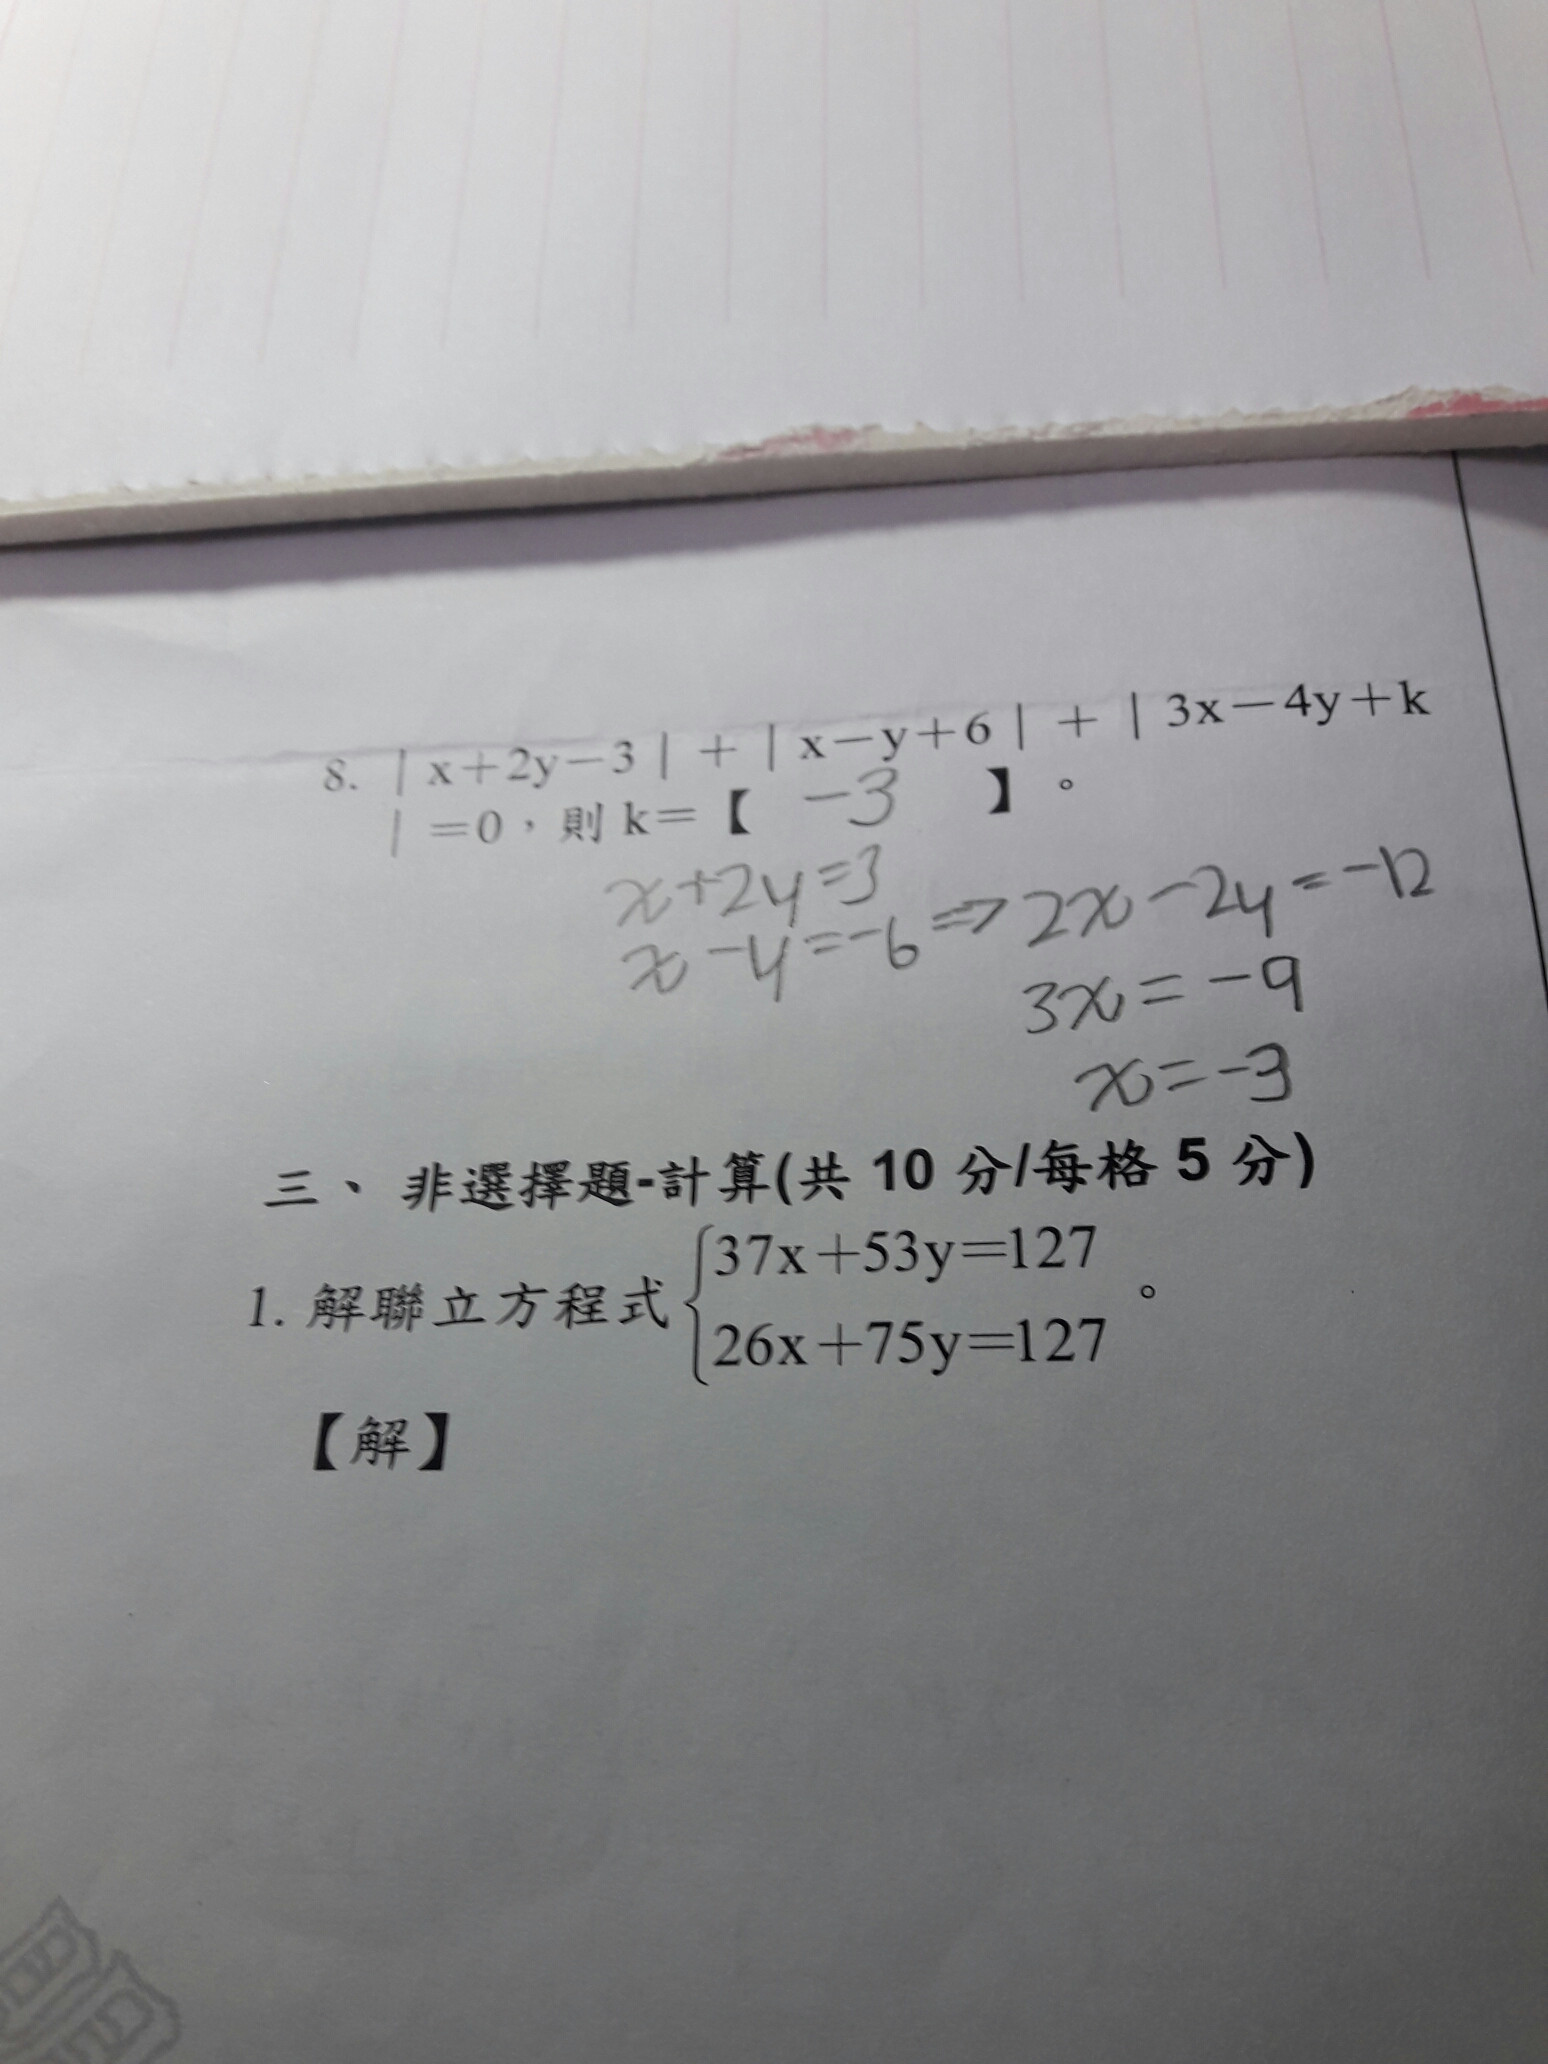 8. | x＋2y－3 | ＋ | x－y＋6 | ＋ | 3x－4y＋k
| ＝0，則 k＝【 -3 】。
x+2y=3
x-y=-6 => 2x-2y=-12
3x=-9
x=-3
三、 非選擇題-計算(共 10 分/每格 5 分)
1. 解聯立方程式 {37x＋53y＝127
26x＋75y＝127 。
【解】